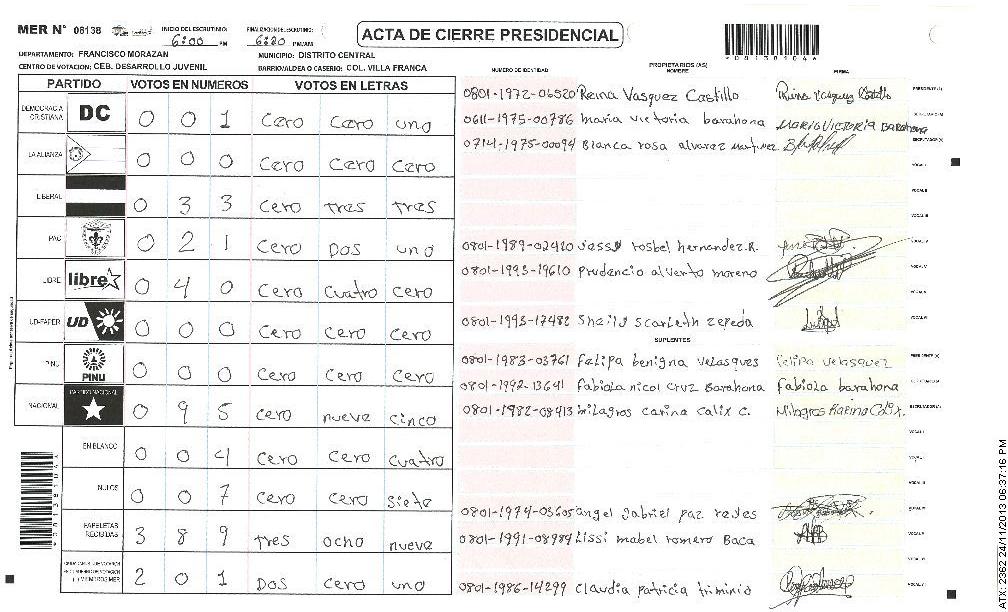 MER N° 08138
INICIO DEL ESCRUTINIO: 6:00 PM
FINALIZACION DEL ESCRUTINIO: 6:20 PM/AM
ACTA DE CIERRE PRESIDENCIAL
DEPARTAMENTO: FRANCISCO MORAZAN
MUNICIPIO: DISTRITO CENTRAL
CENTRO DE VOTACION: CEB. DESARROLLO JUVENIL
BARRIO/ALDEA O CASERIO: COL. VILLA FRANCA
PARTIDO VOTOS EN NUMEROS VOTOS EN LETRAS
DEMOCRACIA CRISTIANA DC 0 0 1 cero cero uno
LA ALIANZA 0 0 0 cero cero cero
LIBERAL 0 3 3 cero tres tres
PAC 0 2 1 cero Dos uno
LIBRE libre 0 4 0 cero cuatro cero
UD-FAPER UD 0 0 0 cero cero cero
PINU PINU 0 0 0 cero cero cero
NACIONAL PARTIDO NACIONAL 0 9 5 cero nueve cinco
EN BLANCO 0 0 4 cero cero cuatro
NULOS 0 0 7 cero cero siete
PAPELETAS RECIBIDAS 3 8 9 tres ocho nueve
2 0 1 Dos cero uno
NUMERO DE IDENTIDAD PROPIETARIOS (AS) NOMBRE FIRMA
0801-1972-06520 Reina Vasquez Castillo Reina Vasquez Castillo PRESIDENTE(A)
0611-1975-00786 maria victoria barahona MARIA VICTORIA BARAHONA SECRETARIO(A)
0714-1975-00094 Blanca rosa alvarez martinez
VOCAL I
VOCAL II
VOCAL III
0801-1989-02420 rosbel hernandez.R. VOCAL IV
0801-1993-19610 prudencio alverto moreno VOCAL V
0801-1993-17482 Sheild scarleth zepeda
SUPLENTES
0801-1983-03761 Felipa benigna velasques Felipa velasquez PRESIDENTE(A)
0801-1992-13641 fabiola nicol cruz Barahona fabiola barahona
0801-1982-08413 milagros carina calix c. Milagros Karina Calix.
VOCAL I
0801-1974-03605 angel gabriel paz reyes
0801-1991-08984 Lissi mabel romero Baca
0801-1986-14299 claudia patricia triminio
ATX-2362 24/11/2013 06:37:16 PM